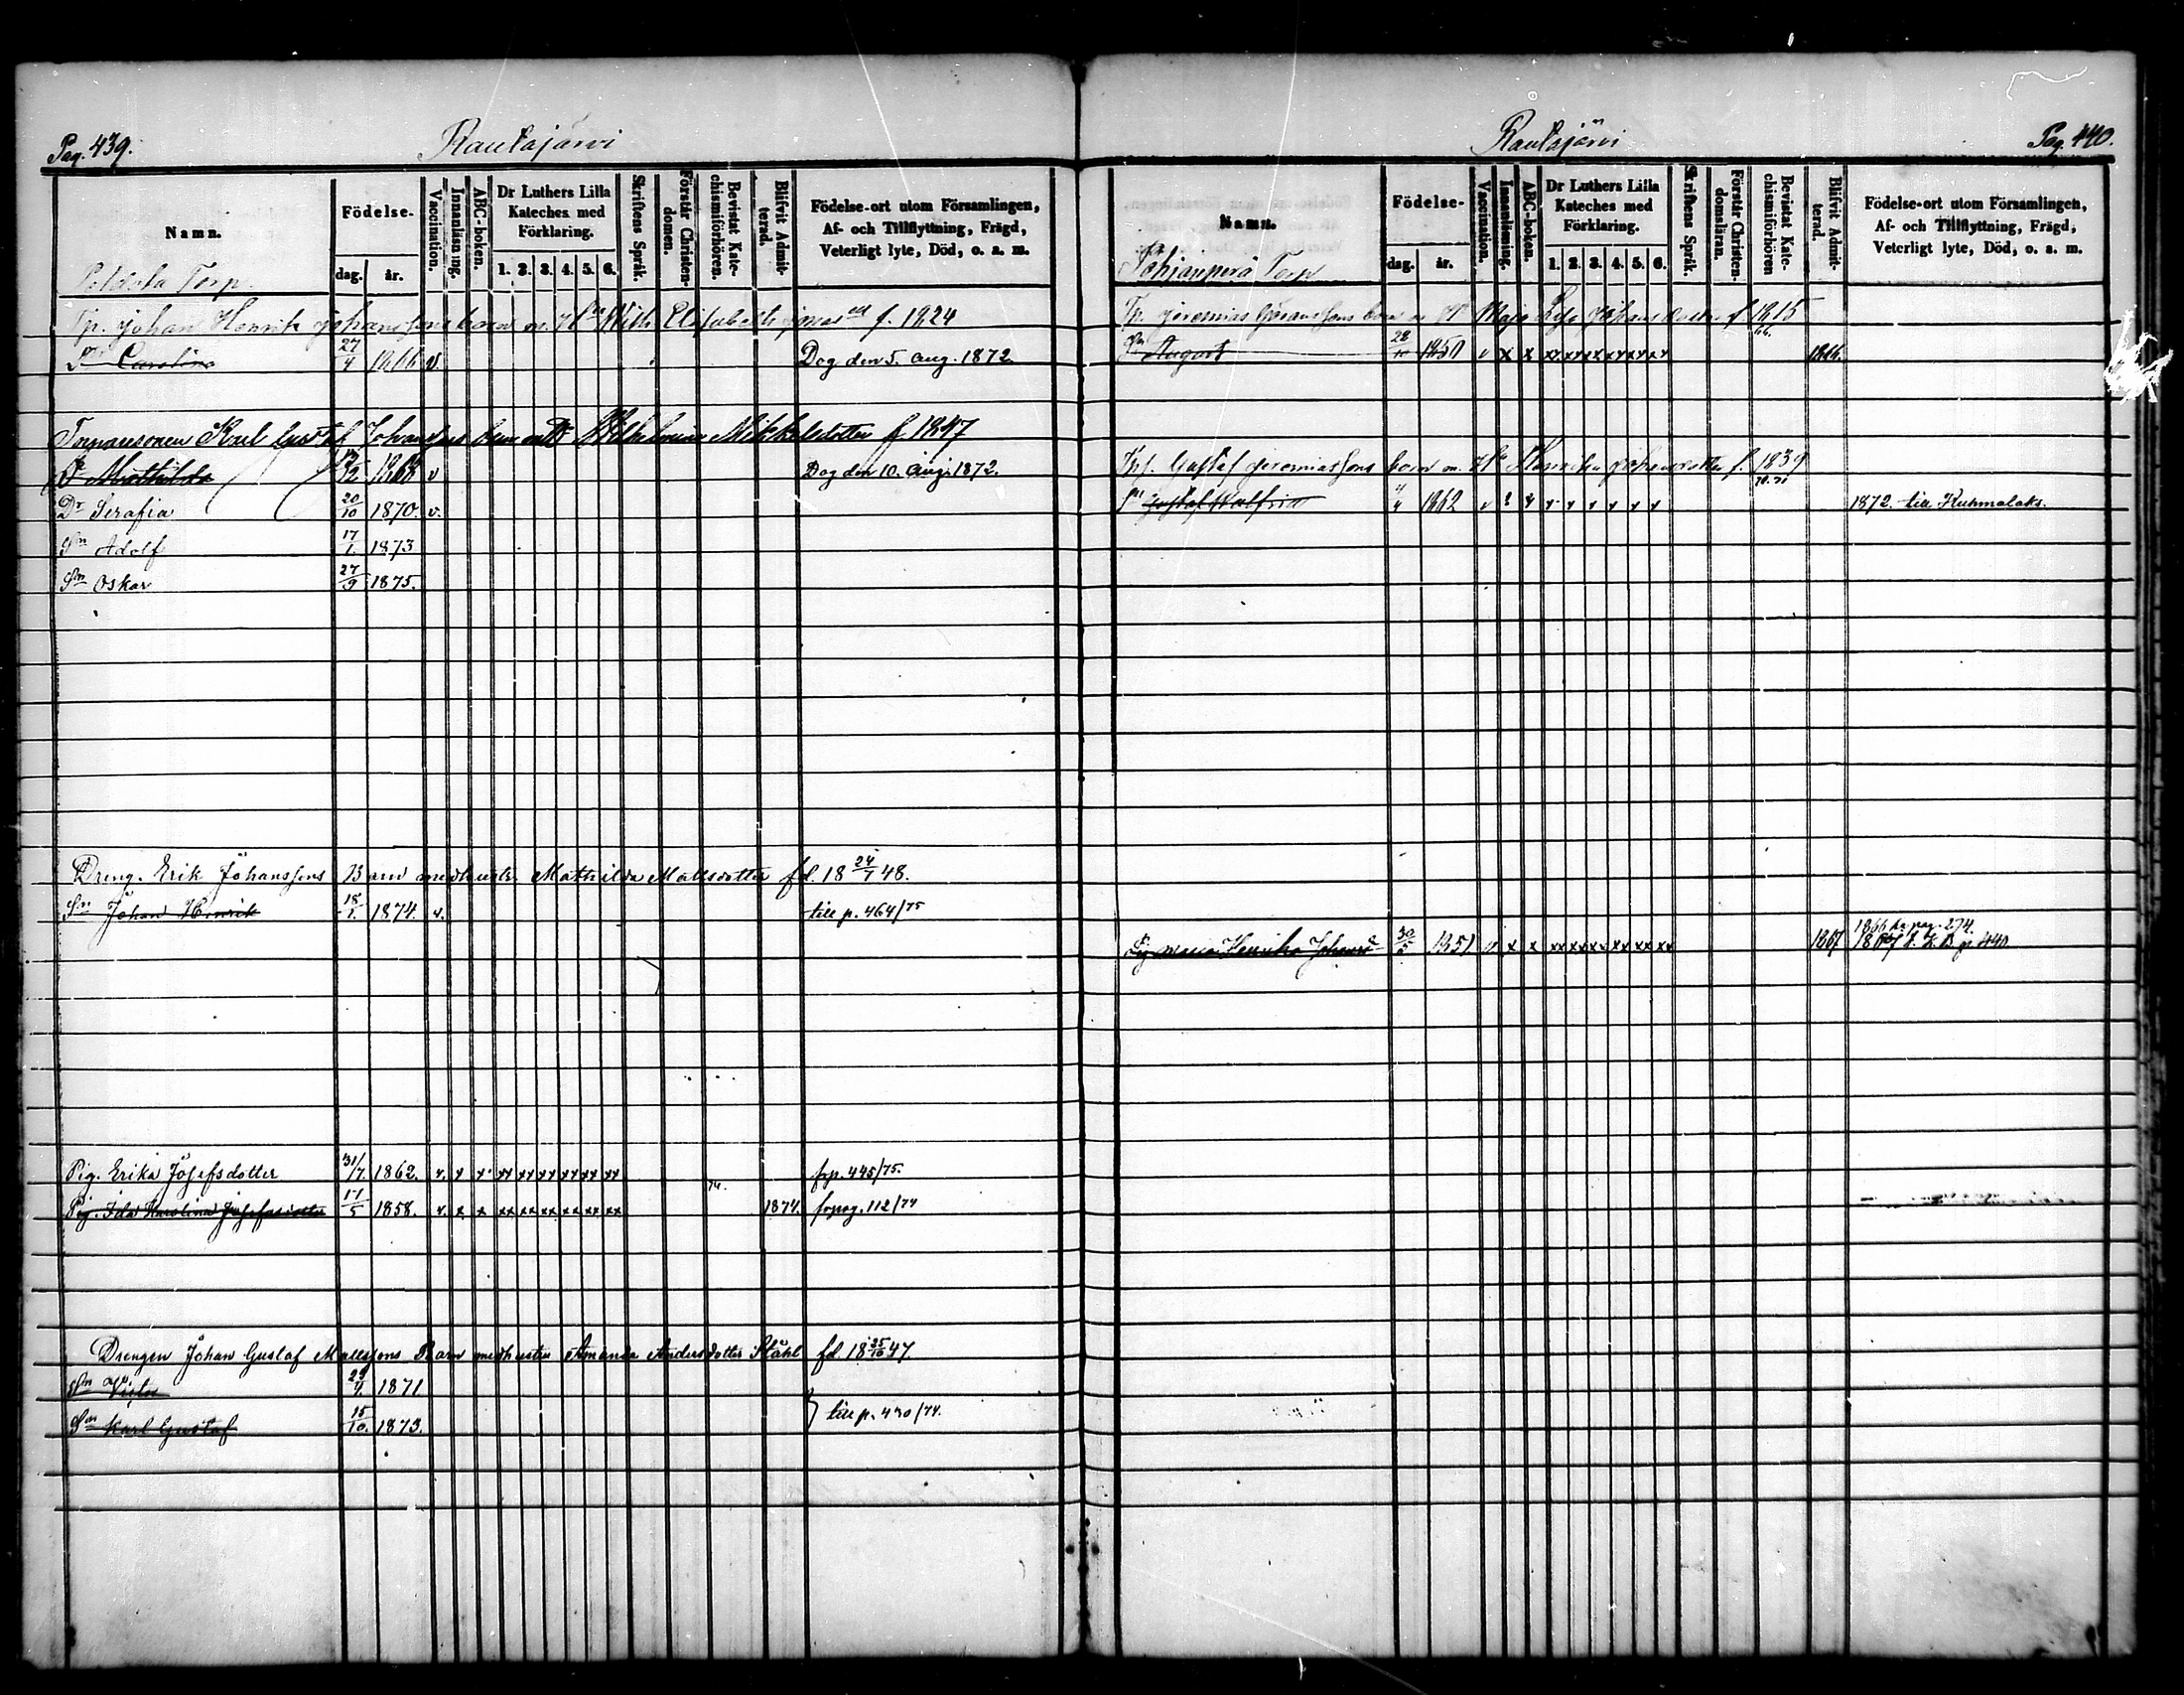 Pag. 439.
Rautajärvi
Namn.
Födelse-
dag.
år.
Vaccination.
Innanläsning.
ABC-boken.
Dr Luthers Lilla Kateches med Förklaring.
1. 2. 3. 4. 5. 6.
Skriftens Språk.
Förstår Christendomen.
Bevistat Katechismiförhören.
Blifvit Admitterad.
Födelse-ort utom Församlingen,
Af- och Tillflyttning, Frägd,
Veterligt lyte, Död, o. a. m.
Torp
Tp. Johan Henrik Johanssons barn m. H Elisabeth f. 1824
Dr Carolina 27/4 1866 v. Dog den 5. Aug. 1872
Torparesonen Karl Gustaf Johanssons barn Wilhelmina Mikkelsdotter f 1847
Dr Mathilda 1868 v Dog den 10. Aug. 1872.
Dr Serafia 20/10 1870. v.
Sn Adolf 17/1 1873
Sn Oskar 27/9 1875.
Dreng. Erik Johanssons Barn med hustr. Mathilda Mattsdotter fd. 18 24/1 48.
Sn Johan Henrik 18/1. 1874. v. till p. 464/75
Pig. Erika Josefsdotter 31/7. 1862. v. x x xx xx xx xx xx xx frp. 445/75.
74.
Pig. Ida Karolina Josefsdotter 17/5 1858. v. x x xx xx xx xx xx xx 1874. frpag. 112/74
Drengen Johan Gustaf Mattssons Barn med hustru Amanda Andersdotter Ståhl fd. 18 25/10 47.
Sn Victor 1871
Sn Karl Gustaf 15/10. 1873. } till p. 430/74.
Rautajärvi
Pag. 440.
Namn.
Pohjanperä Torp
Födelse-
dag.
år.
Vaccination.
Innanläsning.
ABC-boken.
Dr Luthers Lilla Kateches med Förklaring.
1. 2. 3. 4. 5. 6.
Skriftens Språk.
Förstår Christendomsläran.
Bevistat Katechismiförhören
Blifvit Admitterad.
Födelse-ort utom Församlingen,
Af- och Tillflyttning, Frägd,
Veterligt lyte, Död, o. a. m.
Tp. Jeremias Göranssons barn m. H Maja Lisa Johansdotter f. 1815
66.
Sn August 28/10 1850 v x x xx xx xx xx xx xx 1866.
Gustaf Jeremiassons barn m. Hu Henrika Johansdotter f. 1839
70. 71
Sn Gustaf Walfrid 1862 v 1872 till Kuhmalaks.
1866 fr. pag. 274.
Pig Maria Henrika Johansd 30/5 1851 v x x xx xx xx xx xx xx 1867